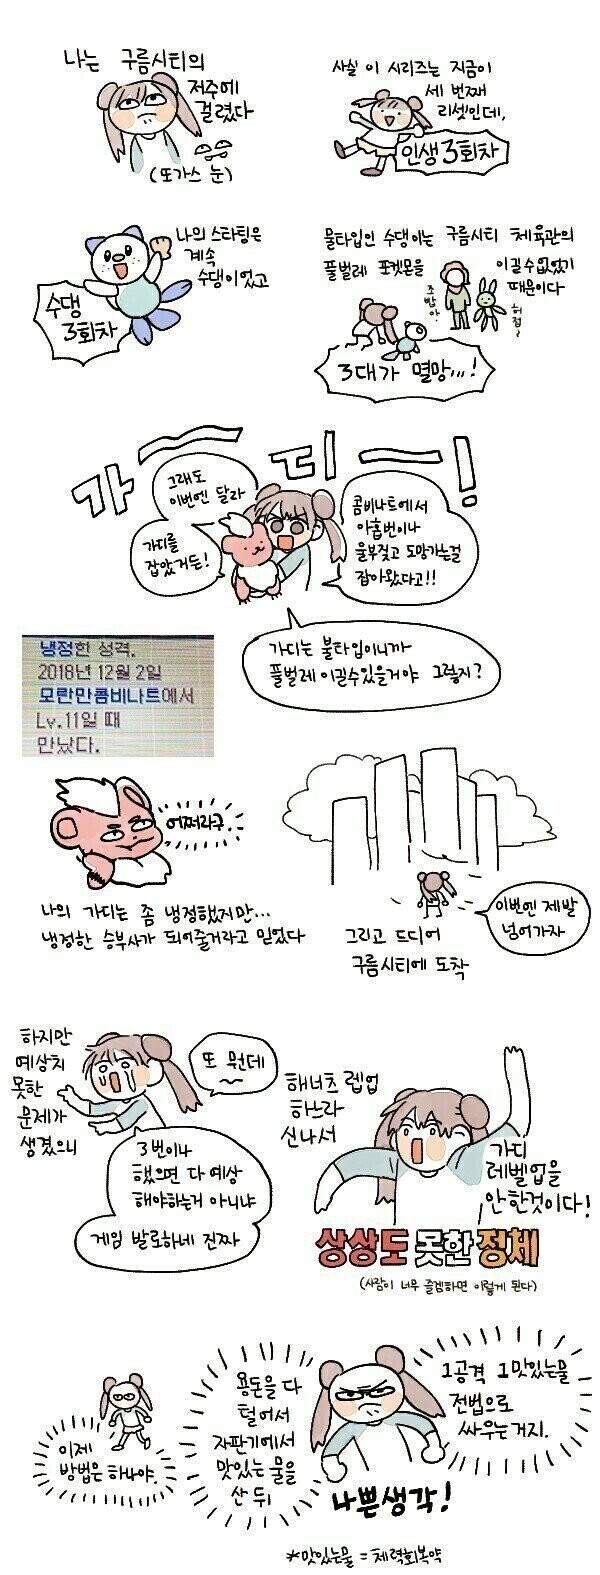 나는 구름시티의
저주에
걸렸다
(또가스 눈)
사실 이 시리즈는 지금이
세 번째
리셋인데,
인생 3회차
나의 스타팅은
계속
수댕이었고
수댕
3회차
물타입인 수댕이는 구름시티 체육관의
풀벌레 포켓몬을 이길수없었기
때문이다
조밥아.
허접~
3대가 멸망...!
가디ㅡ!
그래도
이번엔 달라
가디를
잡았거든!
콤비나트에서
아홉번이나
울부짖고 도망가는걸
잡아왔다고!!
가디는 불타입이니까
풀벌레 이길수있을거야 그렇지?
냉정한 성격.
2018년 12월 2일
모란만콤비나트에서
Lv.11일 때
만났다.
어쩌라구
나의 가디는 좀 냉정했지만...
냉정한 승부사가 되어줄거라고 믿었다
이번엔 제발
넘어가자
그리고 드디어
구름시티에 도착
하지만
예상치
못한
문제가
생겼으니
또 뭔데
3번이나
했으면 다 예상
해야하는거 아니냐
게임 발로하네 진짜
해너츠 렙업
하느라
신나서
가디
레벨업을
안한것이다!
상상도 못한 정체
(사람이 너무 즐겜하면 이렇게 된다)
이제
방법은 하나야.
용돈을 다
털어서
자판기에서
맛있는 물을
산 뒤
1공격 1맛있는물
전법으로
싸우는거지.
나쁜생각!
*맛있는물 = 체력회복약